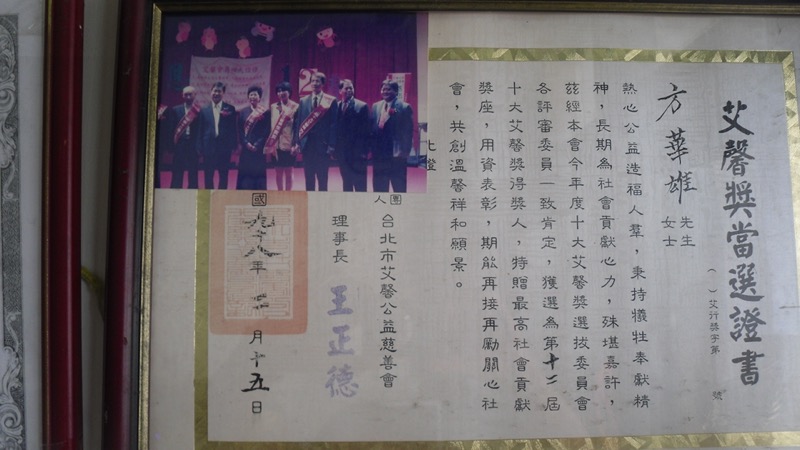 艾馨獎當選證書
（ ）艾行獎字第 號
方華雄 先生
女士
熱心公益造福人羣，秉持犧牲奉獻精
神，長期為社會貢獻心力，殊堪嘉許，
茲經本會今年度十大艾馨獎選拔委員會
各評審委員一致肯定，獲選為第十二屆
十大艾馨獎得獎人，特贈最高社會貢獻
獎座，用資表彰，期能再接再勵關心社
會，共創溫馨祥和願景。
此證
台北市艾馨公益慈善會
理事長 王正德
國九十八年 十二 月十五日